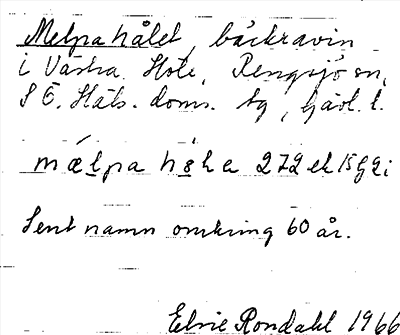 Melpahålet, bäckravin
i Västra Höle, Rengsjö sn,
S Ö. Häls. doms. tg, Gävl. l.
mælpa höla 272 ek 15 g 2 i
Sent namn omkring 60 år.
Elsie Rondahl 1966